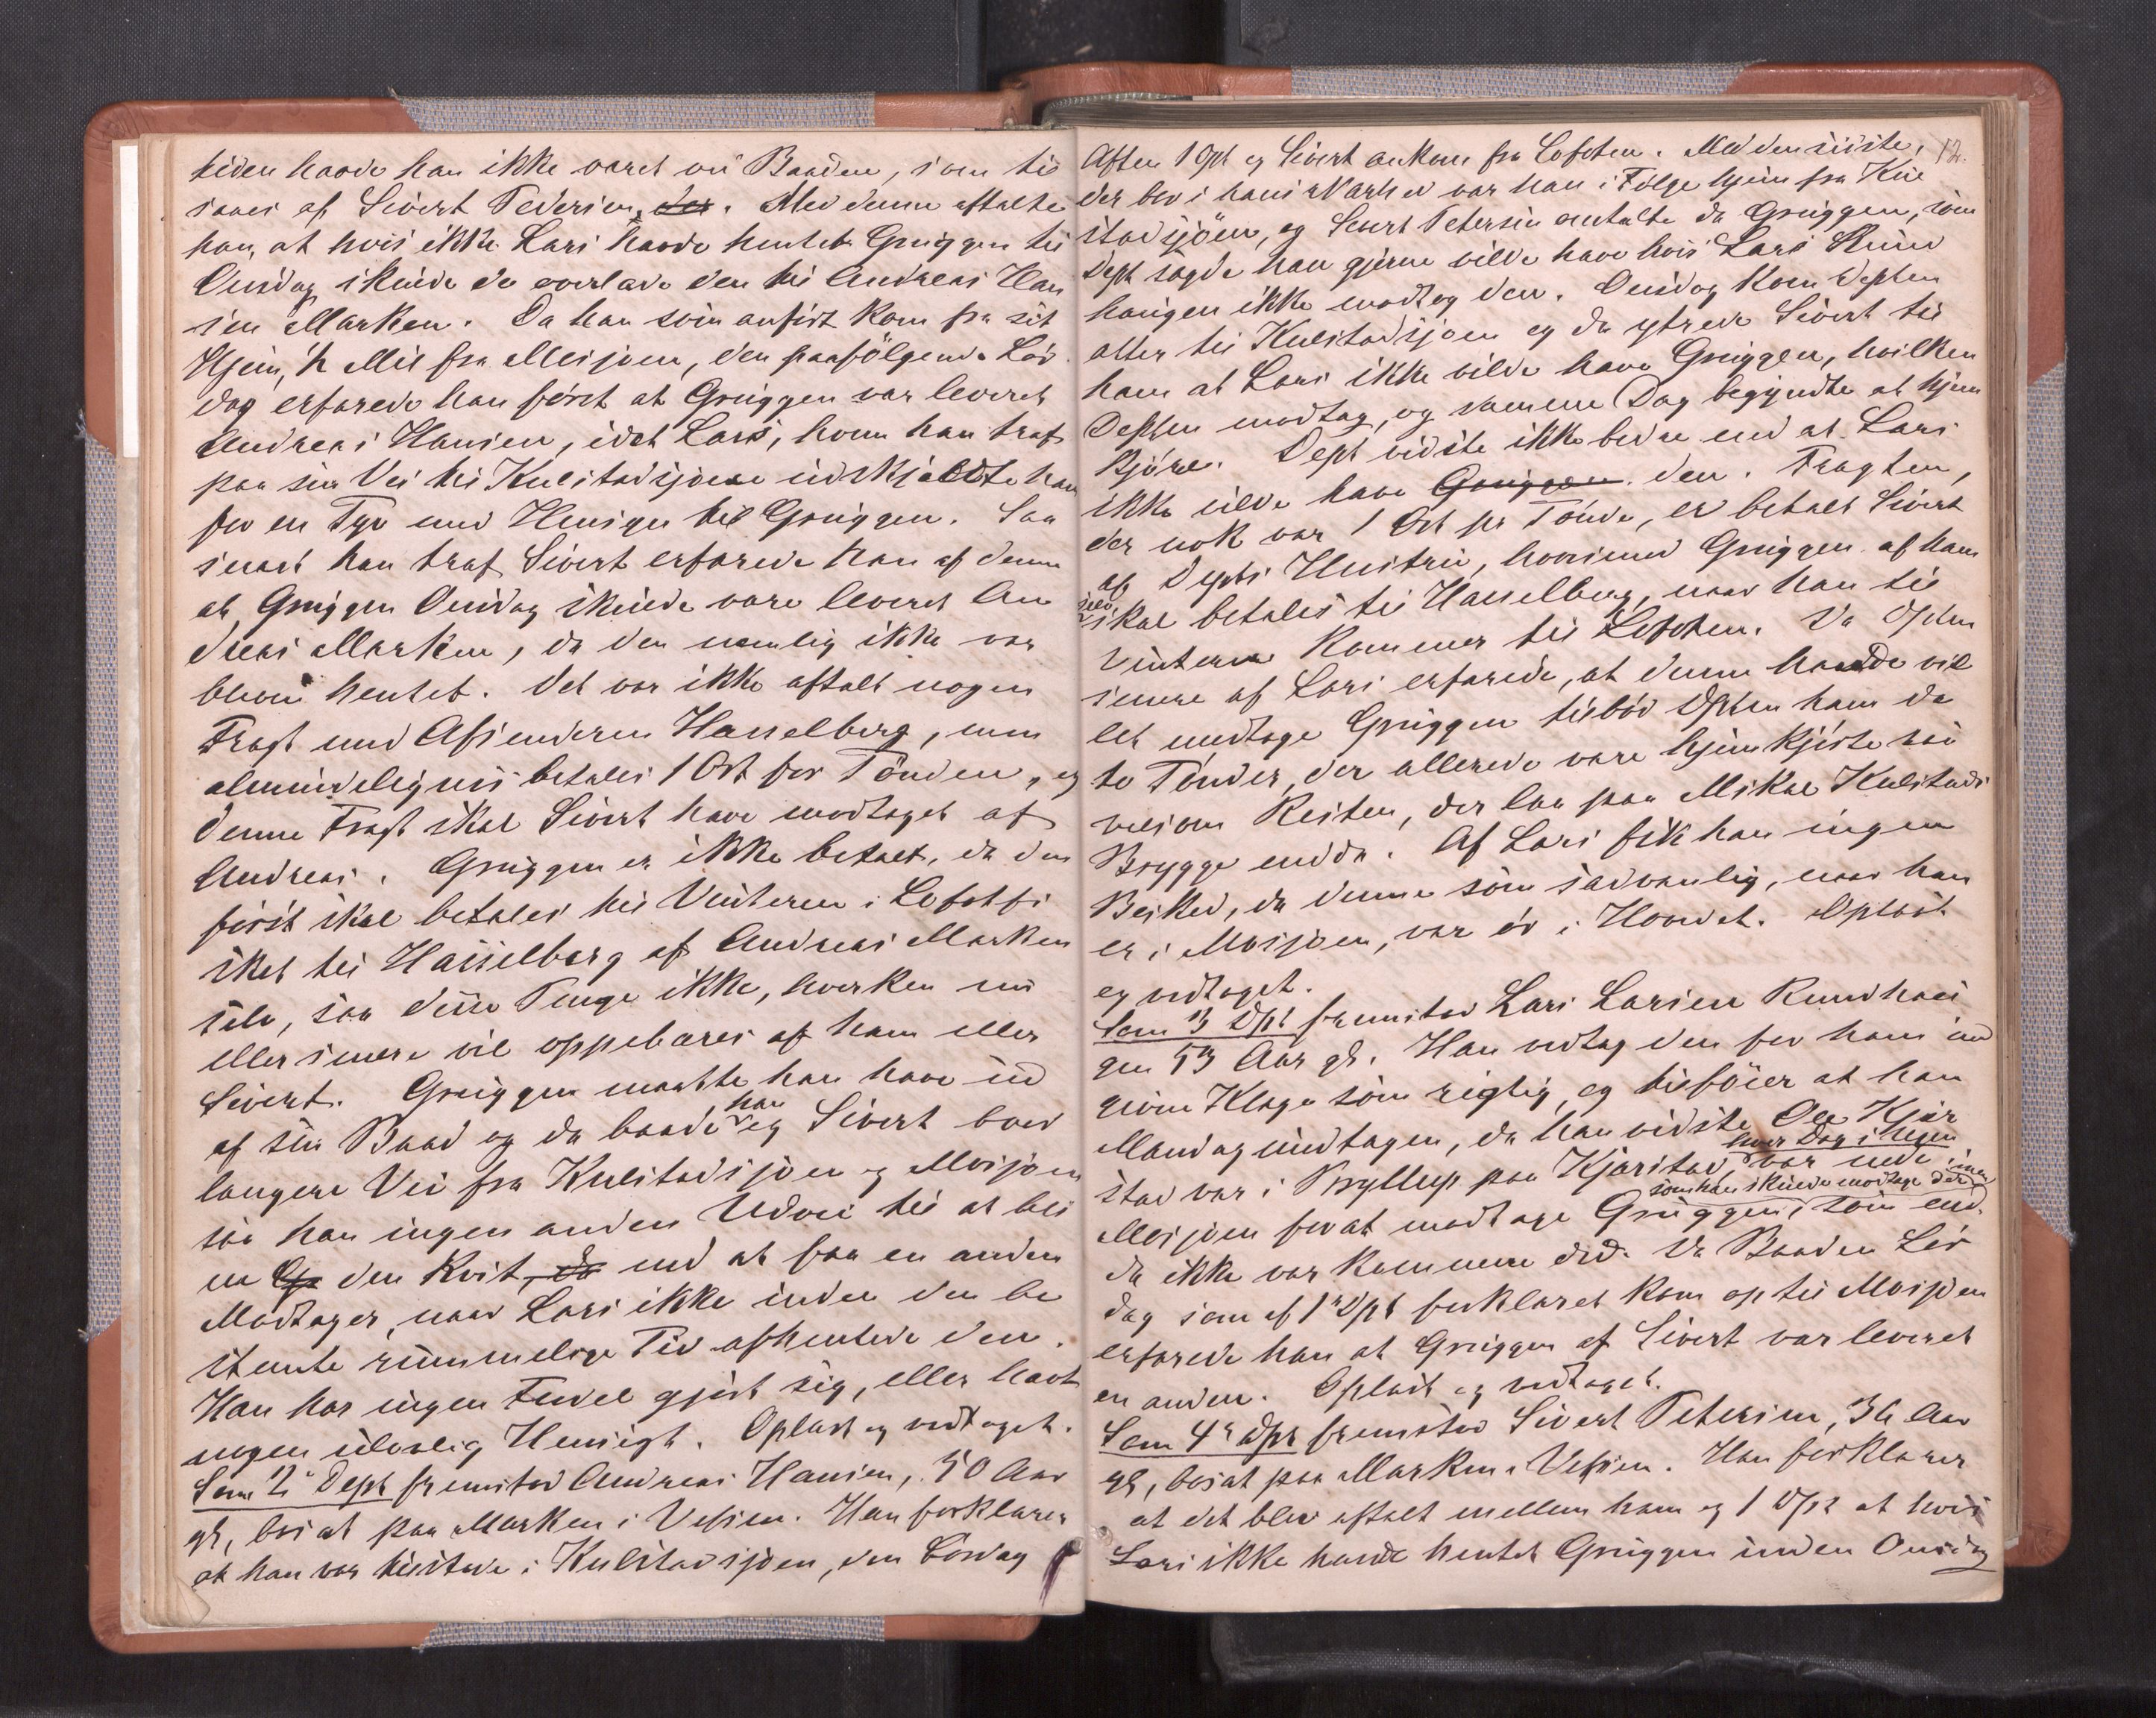 tiden havde han ikke varet ved Baaden, som til
saaes af Sivert Pedersen, der. Med denne aftalte
han, at hvis ikke Lars havde hentet Gruggen til
Onsdag skulde de overlade den til Andreas Han
sen Marken. Da han som anført kom fra sit
Hjem, ½ Mil fra Mosjøen, den paafølgende Lør
dag erfarede han først at Gruggen var leveret
Andreas Hansen, idet Lars, hvem han traf
paa sin Vei til Kulstadsjøen udskjældte ham
for en Tyv med Hensyn til Gruggen. Saa
snart han traf Sivert erfarede han af denne
at Gruggen Onsdag skulde være leveret An
dreas Marken, da den nemlig ikke var
bleven hentet. Det var ikke aftalt nogen
Fragt med Afsenderen Hasselberg, men
almindeligvis betales 1 Ort for Tønden, og
denne Fragt skal Sivert have modtaget af
Andreas. Gruggen er ikke betalt, da den
først skal betales til Vinteren i Lofotfi
sket til Hasselberg af Andreas Marken
selv, saa disse Penge ikke, hverken nu
eller senere vil oppebæres af ham eller
Sivert. Gruggen maatte han have ud
af sin Baad og da baade han og Sivert boer
længere Vei fra Kulstadsjøen og Mosjøen
saa han ingen anden Udvei til at bli
ve den kvit, da end at faa en anden
Modtager, naar Lars ikke inden den be
stemte rummelige Tid afhentede den.
Han har ingen Fordel gjort sig, eller havt
nogen ulovlig Hensigt. Oplæst og vedtaget.
Som 2' Dept fremstod Andreas Hansen, 50 Aar
gl, bosat paa Marken i Vefsen. Han forklarer
at han var tilstede i Kulstadsjøen, den Lørdag
12.
Aften 1 Dpt og Sivert ankom fra Lofoten. Med den sidste,
der bor i hans Nærhed var han i Følge hjem fra Kul
stadsjøen, og Sivert Petersen omtalte da Gruggen, som
Dept sagde han gjerne vilde have hvis Lars Rund
haugen ikke modtog den. Onsdag kom Depten
atter til Kulstadsjøen og da ytrede Sivert til
ham at Lars ikke vilde have Gruggen, hvilken
Depten modtog, og samme Dag begyndte at hjem
kjøre. Dept vidste ikke bedre end at Lars
ikke vilde have Gruggen den. Fragten,
der nok var 1 Ort pr Tønde, er betalt Sivert
af Depts Hustru, hvorimod Gruggen af ham
selv skal betales til Hasselberg, naar han til
Vinteren kommer til Lofoten. Da Dpten
senere af Lars erfarede, at denne havde vil
let modtage Gruggen tilbød Dpten ham de
to Tønder, der allerede vare hjemkjørte saa
velsom Resten, der laa paa Mikal Kulstads
Brygge endda. Af Lars fik han ingen
Besked, da denne som sædvanlig, naar han
er i Mosjøen, var ør i Hovedet. Oplæst
og vedtaget.
Som 3 Dpt fremstod Lars Larsen Rundhau
gen 53 Aar gl. Han vedtog den for ham ind
givne Klage som rigtig, og tilføier at han
Mandag undtagen, da han vidste Ole Kjær
stad var i Bryllup paa Kjærstad, hver Dag i Ugen var nede i
Mosjøen for at modtage Gruggen, som han skulde modtage der som end
da ikke var kommen did. Da Baaden Lør
dag som af 1' Dpt forklaret kom op til Mosjøen
erfarede han at Gruggen af Sivert var leveret
en anden. Oplæst og vedtaget.
Som 4' Dpt fremstod Sivert Petersen, 36 Aar
gl, bosat paa Marken i Vefsen. Han forklarer
at det blev aftalt mellem ham og 1 Dpt at hvis
Lars ikke havde hentet Gruggen inden Onsdag